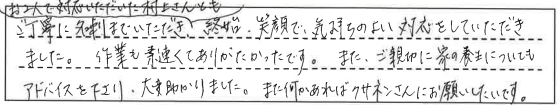 お2人で対応いただいた村上さんとも
ご丁寧に名刺までいただき、終始、笑顔で、気持ちのよい対応をしていただき
ました。作業も素速くてありがたかったです。また、ご親切に家の養生についても
アドバイスを下さり、大変助かりました。また何かあればクサネンさんにお願いしたいです。